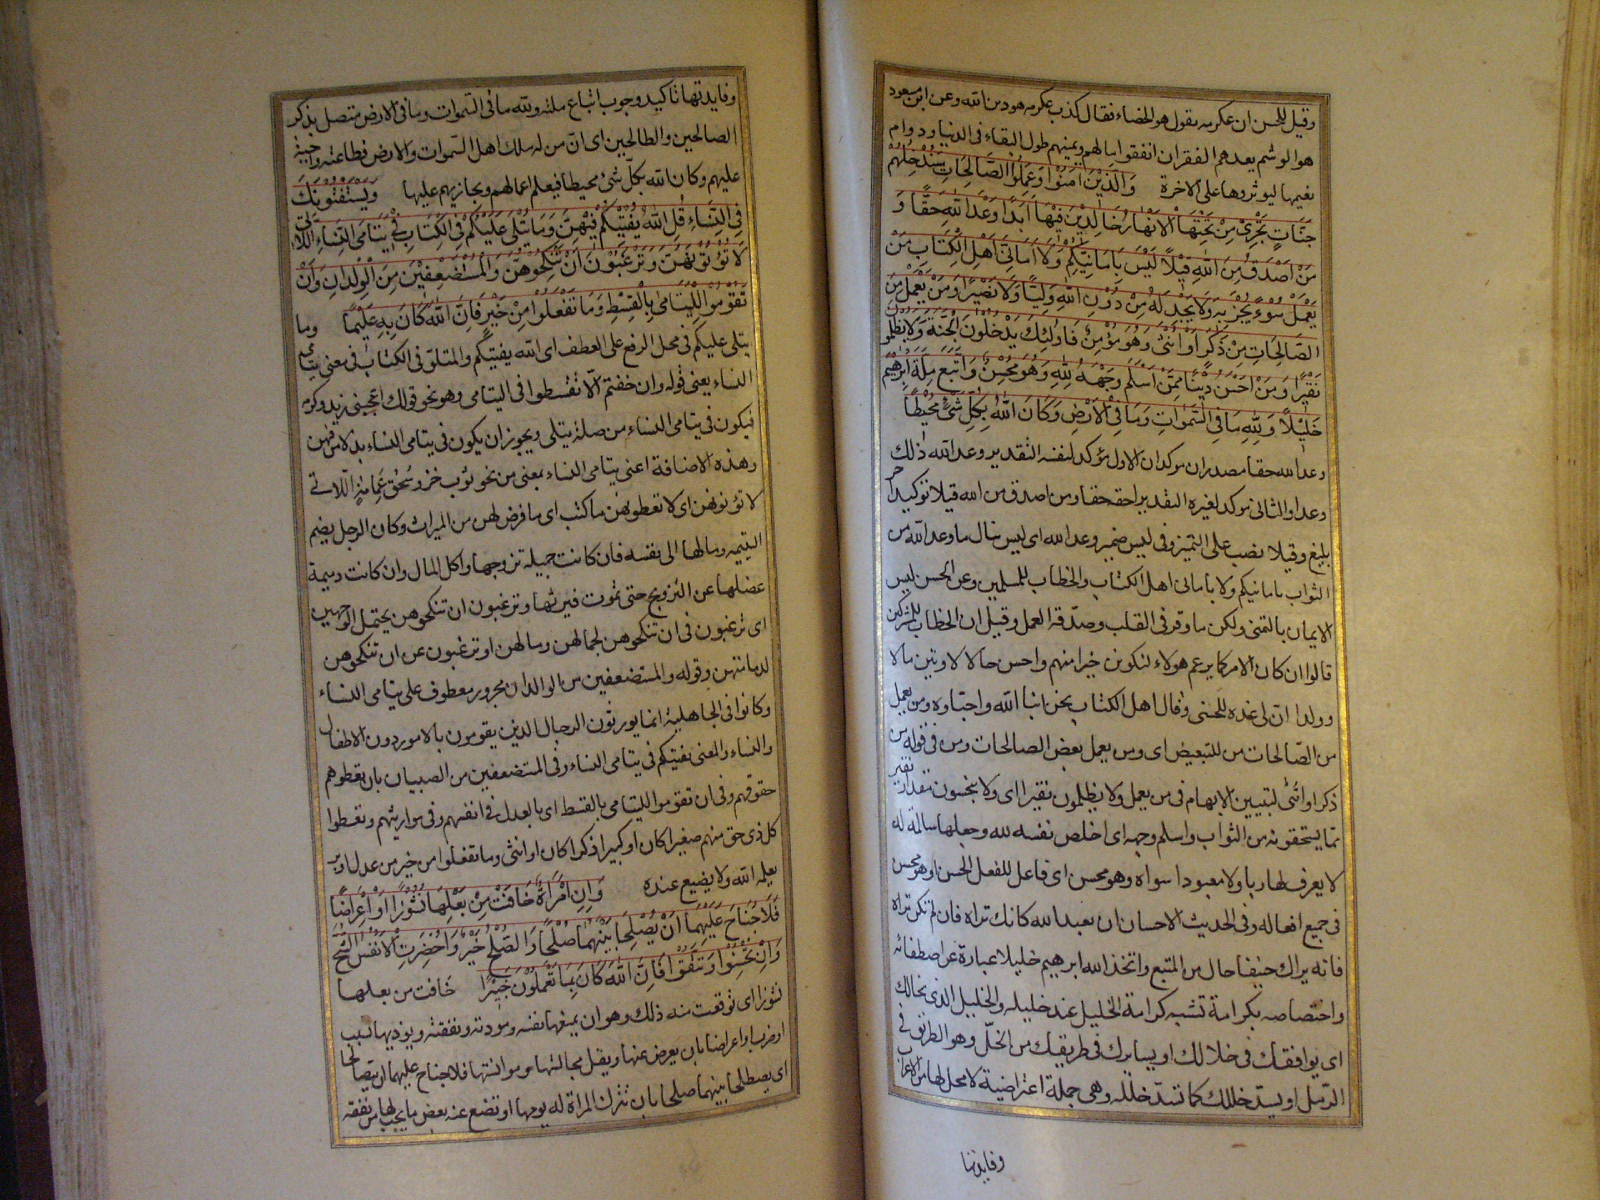 وقيل للحسن ان عكرمه يقول هو الخصاء فقال كذب عكرمه هو دين الله وعن ابن مسعود
هو الوشم يعدهم الفقران انفقوا مالهم ويمنيهم طول البقاء فى الدنيا ودوام
نعيمها ليوثروها على الاخرة وَالَّذِيْنَ اٰمَنُوْا وَعَمِلُوا الصَّالِحَاتِ سَنُدْخِلُهُمْ
جَنَّاتٍ تَجْرِىْ مِنْ تَحْتِهَا الْاَنْهَارُ خَالِدِيْنَ فِيْهَا اَبَدًا وَعْدَ اللهِ حَقًّا وَ
مَنْ اَصْدَقُ مِنَ اللهِ قِيْلًا لَيْسَ بِاَمَانِيِّكُمْ وَلَا اَمَانِىِّ اَهْلِ الْكِتَابِ مَنْ
يَعْمَلْ سُوْءً يُجْزَ بِهِ وَلَا يَجِدْ لَهُ مِنْ دُوْنِ اللهِ وَلِيًّا وَلَا نَصِيْرًا وَمَنْ يَعْمَلْ مِنَ
الصَّالِحَاتِ مِنْ ذَكَرٍ اَوْ اُنْثٰى وَهُوَ مُؤْمِنٌ فَاُولٰئِكَ يَدْخُلُوْنَ الْجَنَّةَ وَلَا يُظْلَمُوْنَ
نَقِيْرًا وَمَنْ اَحْسَنُ دِيْنًا مِمَّنْ اَسْلَمَ وَجْهَهُ لِلّٰهِ وَهُوَ مُحْسِنٌ وَاتَّبَعَ مِلَّةَ اِبْرٰهِيْمَ
خَلِيْلًا وَلِلّٰهِ مَا فِى السَّمٰوَاتِ وَمَا فِى الْاَرْضِ وَكَانَ اللهُ بِكُلِّ شَىْءٍ مُحِيْطًا
وعد الله حقا مصدران موكدان الاول موكد لنفسه التقدير وعد الله ذلك
وعدا والثانى موكد لغيره التقدير احقه حقا ومن اصدق من الله قيلا توكيد اخر
بليغ وقيلا نصب على التميز وفى ليس ضمير وعد الله اى ليس ينال ما وعد الله من
الثواب بامانيكم ولا بامانى اهل الكتاب والخطاب للمسلمين وعن الحسن ليس
الايمان بالتمنى ولكن ما وقر فى القلب وصدّقه العمل وقيل ان الخطاب للمشركين
قالوا ان كان الامر كما يزعم هولاء لنكونن خيرا منهم واحسن حالا لاوتين مالا
وولدا ان لى عنده للحسنى وقال اهل الكتاب نحن ابنا الله واحباوه ومن يعمل
من الصّالحات من للتبعيض اى ومن يعمل بعض الصالحات ومن فى قوله من
ذكر او انثى لتبيين الابهام فى من يعمل ولا يظلمون نقيرا اى ولا يبخسون مقدار نقير
مما يستحقونه من الثواب واسلم وجهه اى اخلص نفسه لله وجعلها سالمة له
لا يعرف لها ربا ولا معبودا سواه وهو محسن اى فاعل للفعل الحسن او هو محسن
فى جميع افعاله وفى الحديث الاحسان ان تعبد الله كانك تراه فان لم تكن تراه
فانه يراك حنيفا حال من المتبع واتخذ الله ابرهيم خليلا عبارة عن اصطفائه
واختصاصه بكرامة تشبه كرامة الخليل عند خليله والخليل الذى يخالك
اى يوافقك فى خلالك او يسايرك فى طريقك من الخلّ وهو الطريق فى
الرّمل او يسدّ خللك كما تسدّ خلله وهى جملة اعتراضية لا محل لها من الاعراب
وفايدتها
وفايدتها تاكيد وجوب اتباع ملته ولله ما فى السّموات وما فى الارض متصل بذكر
الصالحين والطالحين اى انّ من له ملك اهل السّموات والارض فطاعته واجبة
عليهم وكان الله بكلّ شئ محيطا فيعلم اعمالهم ويجازيهم عليها وَيَسْتَفْتُوْنَكَ
فِى النِّسَاءِ قُلِ اللهُ يُفْتِيْكُمْ فِيْهِنَّ وَمَا يُتْلٰى عَلَيْكُمْ فِى الْكِتَابِ فِىْ يَتَامَى النِّسَاءِ اللَّاتِىْ
لَا تُؤْتُوْنَهُنَّ وَتَرْغَبُوْنَ اَنْ تَنْكِحُوْهُنَّ وَالْمُسْتَضْعَفِيْنَ مِنَ الْوِلْدَانِ وَاَنْ
تَقُوْمُوْا لِلْيَتَامٰى بِالْقِسْطِ وَمَا تَفْعَلُوْا مِنْ خَيْرٍ فَاِنَّ اللهَ كَانَ بِهِ عَلِيْمًا وما
يتلى عليكم فى محل الرفع على العطف اى الله يفتيكم والمتلوّ فى الكتاب فى معنى يتامى
النساء يعنى قوله وان خفتم الّا تقسطوا فى اليتامى وهو نحو قولك اعجبنى زيد وكرمه
فيكون فى يتامى النساء من صلة يتلى ويجوز ان يكون فى يتامى النساء بدلا من فيهن
وهذه الاضافة اعنى يتامى النساء بمعنى من نحو ثوب خز وسحق عمامة اللاتى
لا تؤتونهن اى لا تعطونهن ما كتب اى ما فرض لهن من الميراث وكان الرجل يضم
اليتيمه ومالها الى نفسه فان كانت جميلة تزوجها واكل المال وان كانت دميمة
عضلها عن التزويج حتى تموت فيرثها وترغبون ان تنكحوهن يحتمل الوجهين
اى ترغبون فى ان تنكحوهن لجمالهن ومالهن او ترغبون عن ان تنكحوهن
لدمامتهن وقوله والمستضعفين من الوالدان مجرور معطوف على يتامى النساء
وكانوا فى الجاهلية انما يورثون الرجال الذين يقومون بالامور دون الاطفال
والنساء والمعنى يفتيكم فى يتامى النساء وفى المستضعفين من الصبيان بان تعطوهم
حقوقهم وفى ان تقوموا لليتامى بالقسط اى بالعدل فى انفسهم وفى مواريثهم وتعطوا
كل ذى حق منهم صغيرا كان او كبيرا ذكرا كان او انثى وما تفعلوا من خير من عدل او بر
يعلمه الله ولا يضيع عنده وَاِنِ امْرَاَةٌ خَافَتْ مِنْ بَعْلِهَا نُشُوْزًا اَوْ اِعْرَاضًا
فَلَا جُنَاحَ عَلَيْهِمَا اَنْ يُصْلِحَا بَيْنَهُمَا صُلْحًا وَالصُّلْحُ خَيْرٌ وَاُحْضِرَتِ الْاَنْفُسُ الشُّحَّ
وَاِنْ تُحْسِنُوْا وَتَتَّقُوْا فَاِنَّ اللهَ كَانَ بِمَا تَعْمَلُوْنَ خَبِيْرًا خافت من بعلها
نشوزا اى توقعت منه ذلك وهو ان يمنعها نفسه ومودته ونفقته ويوذيها بسب
او ضرب او اعراضا بان يعرض عنها ويقل مجالستها وموانستها فلا جناح عليهما ان يتصالحا
اى يصطلحا بينهما صلحا بان تترك المراة له يومها او تضع عنه بعض ما يجب لها من نفقه